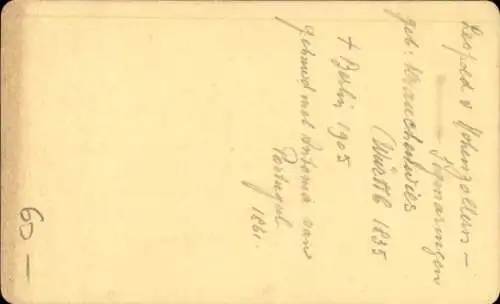 Leopold v Hohenzollern –
Sigmaringen
geb: Krauchenwies
Württb 1835
+ Berlin 1905
gehuwd met Antonia van
Portugal
1861.
60 —